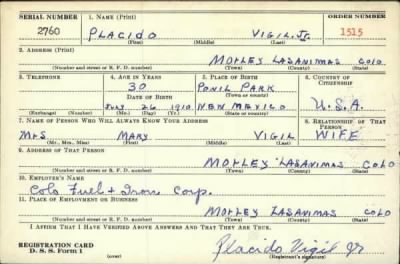 SERIAL NUMBER 1. NAME (Print) ORDER NUMBER
2760 PLACIDO VIGIL, JR. 1515
(First) (Middle) (Last)
2. ADDRESS (Print)
MORLEY LASANIMAS COLO
(Number and street or R. F. D. number) (Town) (County) (State)
3. TELEPHONE 4. AGE IN YEARS 5. PLACE OF BIRTH 6. COUNTRY OF CITIZENSHIP
30 PONIL PARK
DATE OF BIRTH (Town or county)
JULY 26 1910 NEW MEXICO U.S.A.
(Exchange) (Number) (Mo.) (Day) (Yr.) (State or country)
7. NAME OF PERSON WHO WILL ALWAYS KNOW YOUR ADDRESS 8. RELATIONSHIP OF THAT PERSON
MRS MARY VIGIL WIFE
(Mr., Mrs., Miss) (First) (Middle) (Last)
9. ADDRESS OF THAT PERSON
MORLEY LASANIMAS COLO
(Number and street or R. F. D. number) (Town) (County) (State)
10. EMPLOYER'S NAME
Colo Fuel & Iron Corp.
11. PLACE OF EMPLOYMENT OR BUSINESS
MORLEY LASANIMAS COLO
(Number and street or R. F. D. number) (Town) (County) (State)
I AFFIRM THAT I HAVE VERIFIED ABOVE ANSWERS AND THAT THEY ARE TRUE.
REGISTRATION CARD Placido Vigil Jr
D. S. S. Form 1 (over) (Registrant's signature)